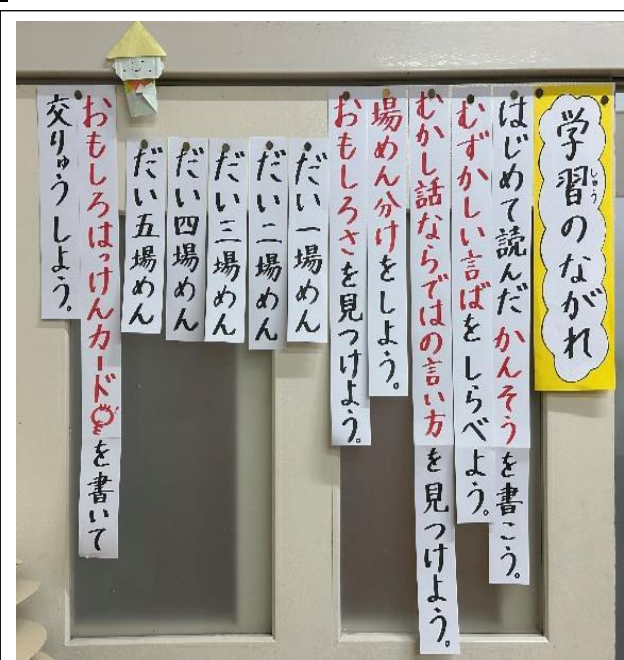 学習のながれ
しゅう
はじめて読んだかんそうを書こう。
むずかしい言ばをしらべよう。
むかし話ならではの言い方を見つけよう。
場めん分けをしよう。
おもしろさを見つけよう。
だい一場めん
だい二場めん
だい三場めん
だい四場めん
だい五場めん
おもしろはっけんカードを書いて
交りゅうしよう。